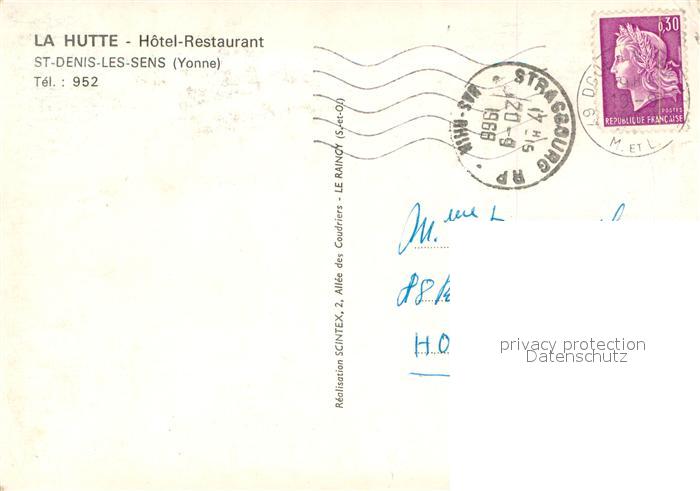 LA HUTTE - Hôtel-Restaurant
ST-DENIS-LES-SENS (Yonne)
Tél. : 952
Réalisation SCINTEX, 2, Allée des Coudriers - LE RAINCY (S.-et-O.)
STRASBOURG RP
BAS-RHIN
17 H 15
20-9
1968
0,30
POSTES
REPUBLIQUE FRANÇAISE
M. ET L.
Mme L
88
HO
privacy protection
Datenschutz